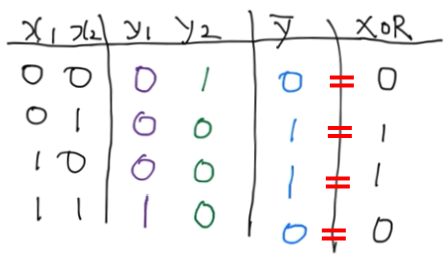 x₁ x₂ y₁ y₂ ȳ XOR
0 0 0 1 0 = 0
0 1 0 0 1 = 1
1 0 0 0 1 = 1
1 1 1 0 0 = 0